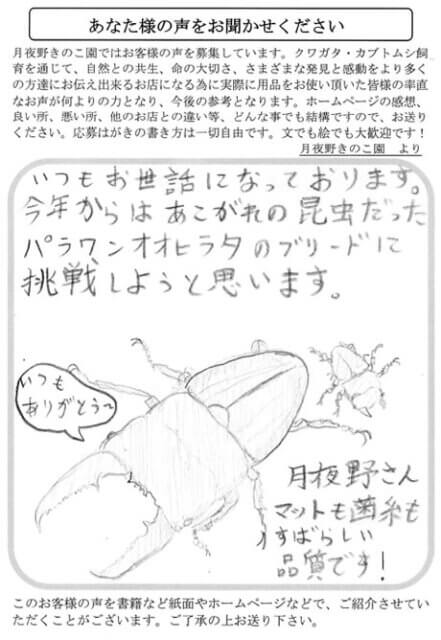 あなた様の声をお聞かせください
月夜野きのこ園ではお客様の声を募集しています。クワガタ・カブトムシ飼
育を通じて、自然との共生、命の大切さ、さまざまな発見と感動をより多く
の方達にお伝え出来るお店になる為に実際に用品をお使い頂いた皆様の率直
なお声が何よりの力となり、今後の参考となります。ホームページの感想、
良い所、悪い所、他のお店との違い等、どんな事でも結構ですので、お送り
ください。応募はがきの書き方は一切自由です。文でも絵でも大歓迎です！
月夜野きのこ園　より
いつもお世話になっております。
今年からは あこがれの昆虫だった
パラワンオオヒラタのブリードに
挑戦しようと思います。
いつも
ありがとう〜
月夜野さん
マットも菌糸も
すばらしい
品質です！
このお客様の声を書籍など紙面やホームページなどで、ご紹介させてい
ただくことがございます。ご了承の上お送り下さい。